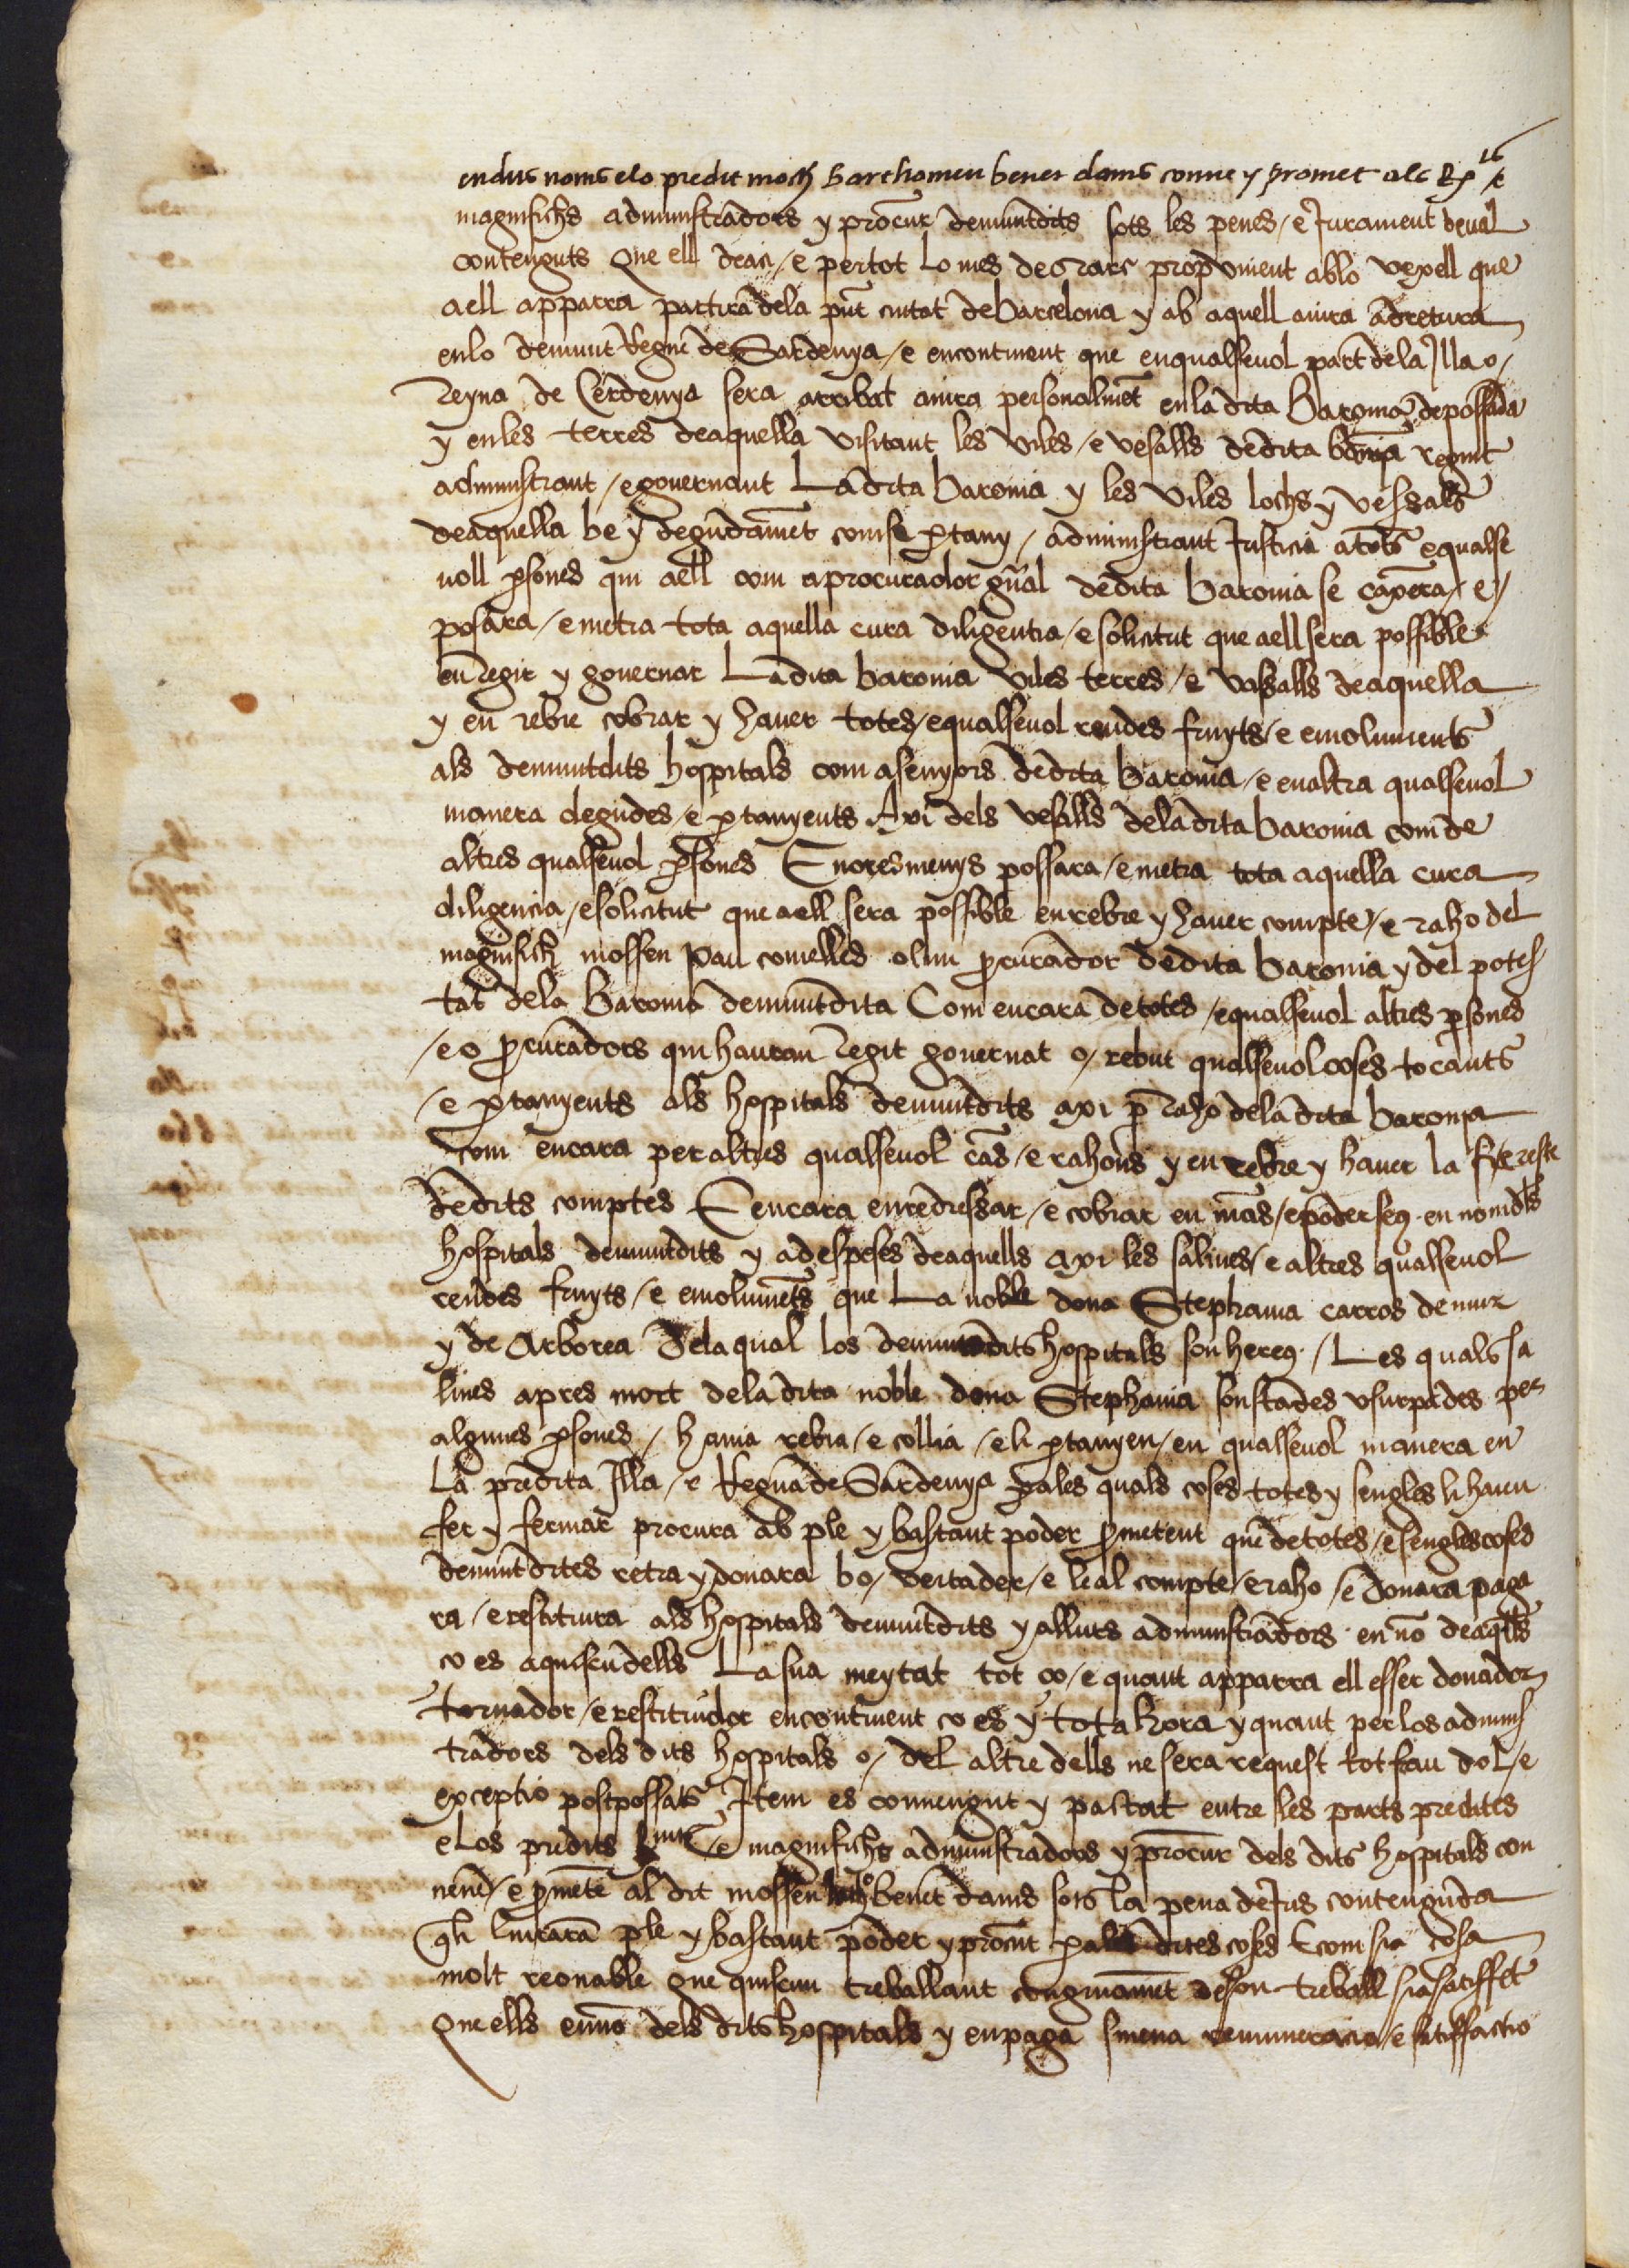 endits noms e lo predit moss Barthomeu benet damis conue y promet als Rx ts e
magnifichs administradors y procur demuntdits sots les penes / e Jurament deual
contenguts Que ell deaci / e per tot lo mes de març propvinent ab lo vexell que
a ell apparra partira dela pnt ciutat de barcelona y ab aquell anira a dretura
en lo demunt Regne de Sardenya / e encontinent que en qualseuol part dela Illa o /
Reyna de Cerdenya sera arribat anira personalmet en la dita Baronia de possada
y en les terres de aquella visitant les viles / e vesalls de dita bonia regint
administrant / e gouernant La dita baronia y les viles lochs y vessals
de aquella be y degudamet com se ptany / administrant Justicia a tots e qualse
uoll psones qui a ell com a procurador gnal de dita baronia se / e /
posara / e metra tota aquella cura diligentia / e solicitut que a ell sera possible
en regir y gouernar La dita baronia viles terres / e vassalls de aquella
y en rebre cobrar y hauer totes / e qualseuol rendes fruyts / e emoluments
als demuntdits hospitals com a senyors de dita baronia / e en altra qualseuol
manera degudes / e ptanyents Axi dels vesalls dela dita baronia com de
altres qualseuol psones E noresmenys possara / e metra tota aquella cura
diligencia / e solicitut que a ell sera possible en rebre y hauer compte / e raho del
magnifich mossen Pau comelles olim pcurador de dita baronia y del potes
tat dela Baronia demuntdita Com encara de totes / e qualseuol altres psones
/ e o pcuradors qui hauran regit gouernat o / rebut qualseuol coses tocants
/ e ptanyents als hospitals demuntdits axi p raho dela dita baronia
com encara per altres qualseuol cas / e rahons y en rebre y hauer la reste
de dits comptes E encara en redressar / e cobrar en mas / e poder seu en nom dls
hospitals demuntdits y a despeses de aquells axi les salines / e altres qualseuol
rendes fruyts / e emolumets que La noble dona Stephania carros de mur
y de Arborea dela qual los demuntdits hospitals son hereus / Les quals sa
lines apres mort dela dita noble dona Stephania son stades vsurpades per
algunes psones / hauia rebia / e collia / e li ptanyen / en qualseuol manera en
La predita Illa / e Regna de Sardenya p ales quals coses totes y sengles li hauen
fer y fermar procura ab ple y bastant poder pmetent que de totes / e sengles coses
demuntdites retra y donara bo / vertader / e leal compte / e raho / e donara paga
ra / e restituira als hospitals demuntdits y alluts administradors en no de aqlls
ço es a quiscu dells La sua meytat tot ço / e quant apparra ell esser donador
tornador / e restituidor encontinent ço es y tota hora y quant per los adminis
tradors dels dits hospitals o / del altre dells ne sera request tot frau dol / e
exceptio postpossats Item es conuengut y pactat entre les parts predites
e Los predits e magnifichs administradors y procur dels dits hospitals con
uene / e pmete al dit mossen benet damis sots la pena dejus contenguda
qli liuraran ple y bastant poder y procur p ales dites coses E com sia cosa
molt reonable que quiscun treballant congruamet de son treball sia satisffet
Que ells en no dels dits hospitals y en paga smena remuneracio / e satisffactio